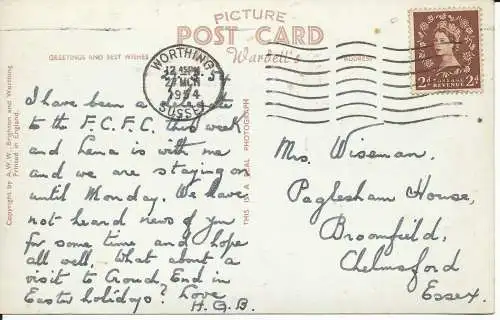 PICTURE
POST CARD
GREETINGS AND BEST WISHES
Wardell's
ADDRESS
WORTHING
12 45PM
MCH
1954
SUSSEX
POSTAGE
REVENUE
2d 2d
Copyright by A.W.W., Brighton and Worthing
Printed in England.
THIS IS A REAL PHOTOGRAPH
I have been a delegate
to the F.C.F.C. this week
and Lena is with me
and we are staying on
until Monday. We have
not heard news of you
for some time and hope
all well. What about a
visit to Crouch End in
Easter holidays? Love
H.G.B.
Mrs. Wiseman.
Paglesham House,
Broomfield,
Chelmsford
Essex.